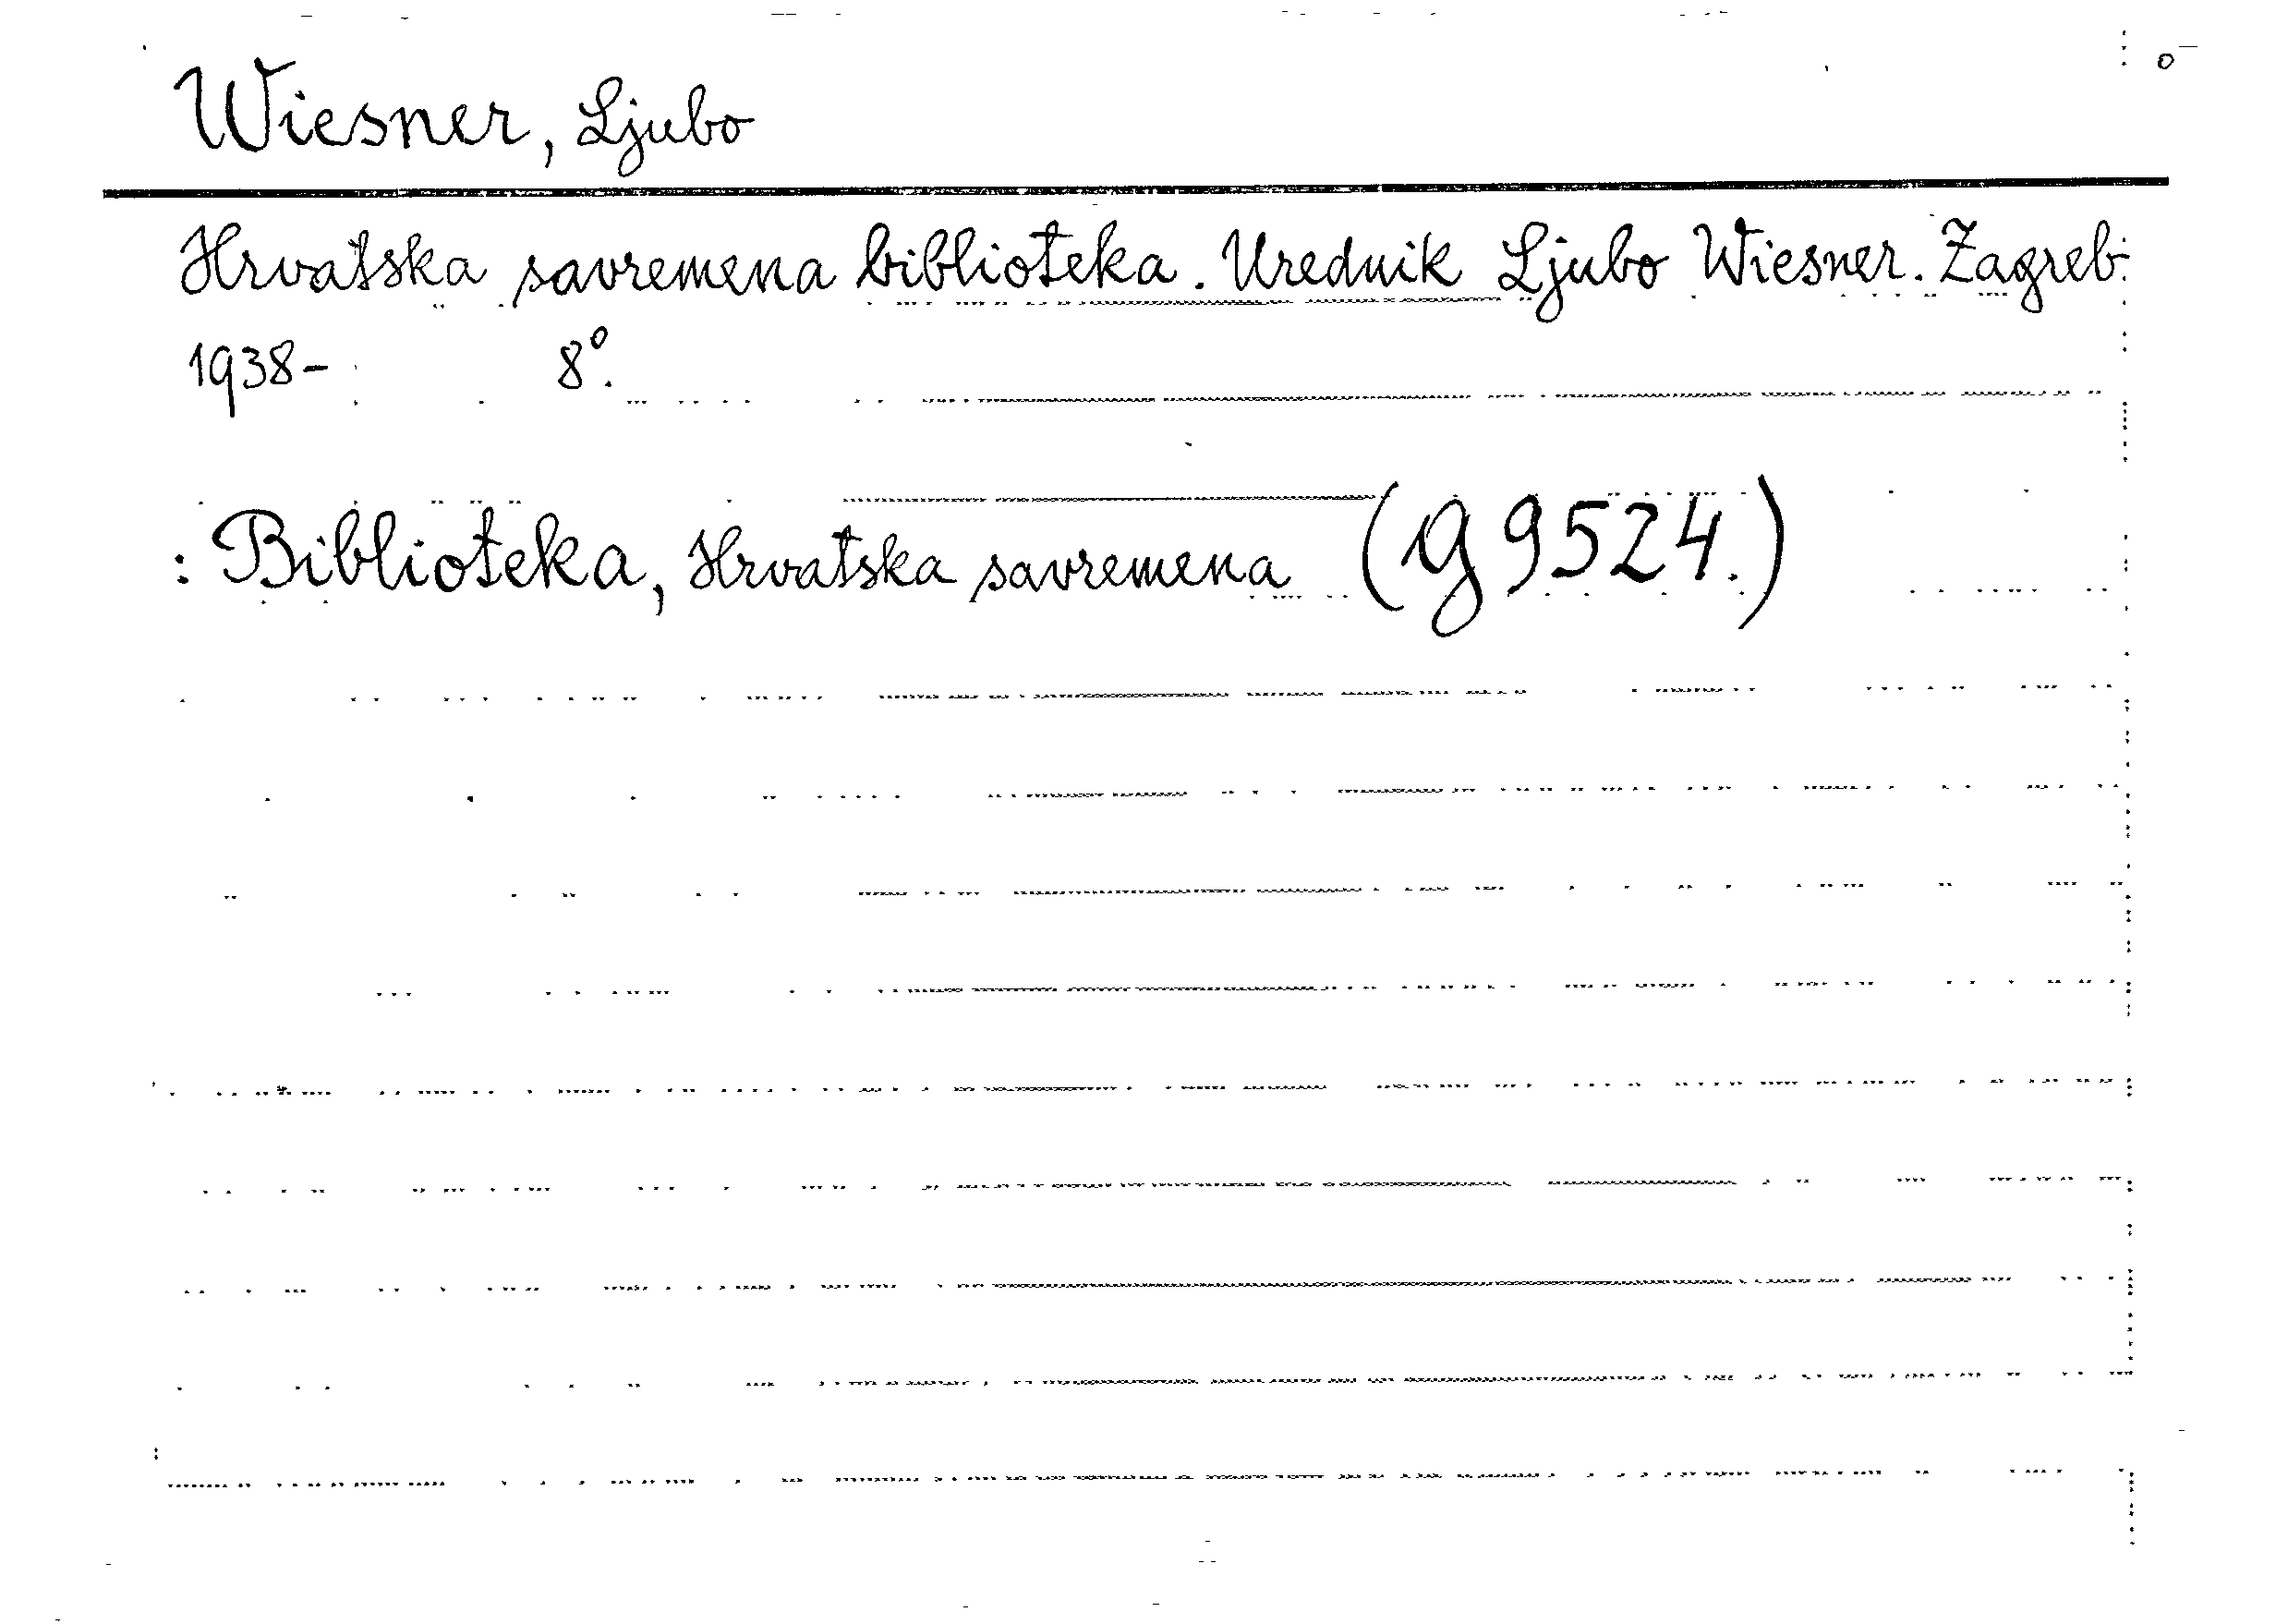 Wiesner, Ljubo
Hrvatska savremena biblioteka. Urednik Ljubo Wiesner. Zagreb
1938- 8°.
: Biblioteka, Hrvatska savremena (g 9524.)